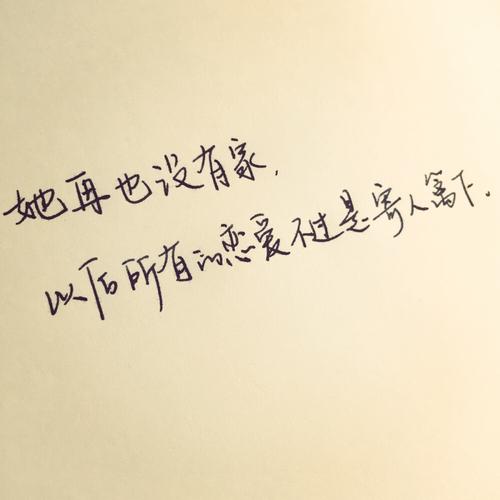 她再也没有家,
以后所有的恋爱不过是寄人篱下.